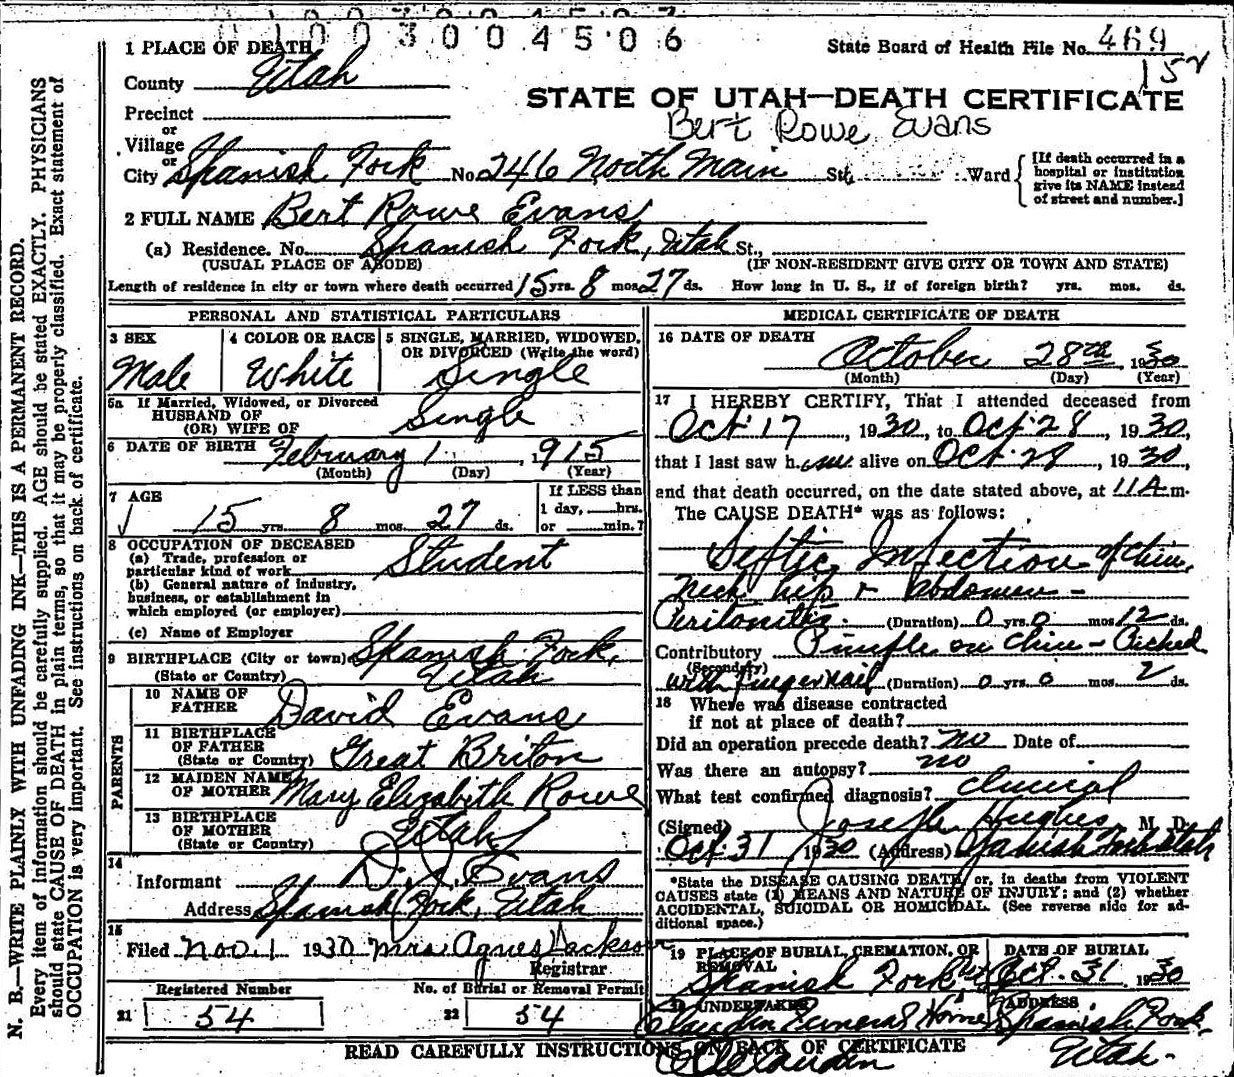 1003004506
1 PLACE OF DEATH
State Board of Health File No. 469
152
County Utah
STATE OF UTAH—DEATH CERTIFICATE
Precinct
Bert Rowe Evans
or
Village
or
City Spanish Fork No. 246 North Main St., Ward
[If death occurred in a hospital or institution give its NAME instead of street and number.]
2 FULL NAME Bert Rowe Evans
(a) Residence. No. Spanish Fork, Utah St.,
(USUAL PLACE OF ABODE) (IF NON-RESIDENT GIVE CITY OR TOWN AND STATE)
Length of residence in city or town where death occurred 15 yrs. 8 mos. 27 ds. How long in U. S., if of foreign birth? yrs. mos. ds.
PERSONAL AND STATISTICAL PARTICULARS
3 SEX 4 COLOR OR RACE 5 SINGLE, MARRIED, WIDOWED, OR DIVORCED (Write the word)
Male White Single
5a If Married, Widowed, or Divorced
HUSBAND OF
(OR) WIFE OF Single
6 DATE OF BIRTH February 1, 1915
(Month) (Day) (Year)
7 AGE
15 yrs. 8 mos. 27 ds.
If LESS than
1 day, hrs.
or min.?
8 OCCUPATION OF DECEASED
(a) Trade, profession or
particular kind of work Student
(b) General nature of industry,
business, or establishment in
which employed (or employer)
(c) Name of Employer
9 BIRTHPLACE (City or town) Spanish Fork,
(State or Country) Utah
PARENTS
10 NAME OF
FATHER David Evans
11 BIRTHPLACE
OF FATHER
(State or Country) Great Briton
12 MAIDEN NAME
OF MOTHER Mary Elizabith Rowe
13 BIRTHPLACE
OF MOTHER
(State or Country) Utah
14
Informant D. J. Evans
Address Spanish Fork, Utah
15
Filed Nov. 1 1930 Mrs Agnes Jackson
Registrar
Registered Number No. of Burial or Removal Permit
21 54 22 54
MEDICAL CERTIFICATE OF DEATH
16 DATE OF DEATH
October 28th, 1930
(Month) (Day) (Year)
17 I HEREBY CERTIFY, That I attended deceased from
Oct. 17, 1930, to Oct. 28, 1930,
that I last saw him alive on Oct. 28, 1930,
and that death occurred, on the date stated above, at 11 A m.
The CAUSE DEATH* was as follows:
Septic Infection of Chin,
neck hip & Abdomen -
Peritonitis. (Duration) 0 yrs. 0 mos. 12 ds.
Contributory Pimple on Chin - Picked
(Secondary)
with fingernail (Duration) 0 yrs. 0 mos. 2 ds.
18 Where was disease contracted
if not at place of death?
Did an operation precede death? no Date of
Was there an autopsy? no
What test confirmed diagnosis? Clinical
(Signed) Joseph Hughes M. D.
Oct. 31, 1930 (Address) Spanish Fork Utah
*State the DISEASE CAUSING DEATH, or, in deaths from VIOLENT
CAUSES state (1) MEANS AND NATURE OF INJURY; and (2) whether
ACCIDENTAL, SUICIDAL OR HOMICIDAL. (See reverse side for ad-
ditional space.)
19 PLACE OF BURIAL, CREMATION, OR REMOVAL DATE OF BURIAL
Spanish Fork, Ut Oct. 31 1930
20 UNDERTAKER ADDRESS
Claudin Funeral Home Spanish Fork,
Utah.
READ CAREFULLY INSTRUCTIONS ON BACK OF CERTIFICATE
N. B.—WRITE PLAINLY WITH UNFADING INK—THIS IS A PERMANENT RECORD.
Every item of information should be carefully supplied. AGE should be stated EXACTLY. PHYSICIANS
should state CAUSE OF DEATH in plain terms, so that it may be properly classified. Exact statement of
OCCUPATION is very important. See instructions on back of certificate.